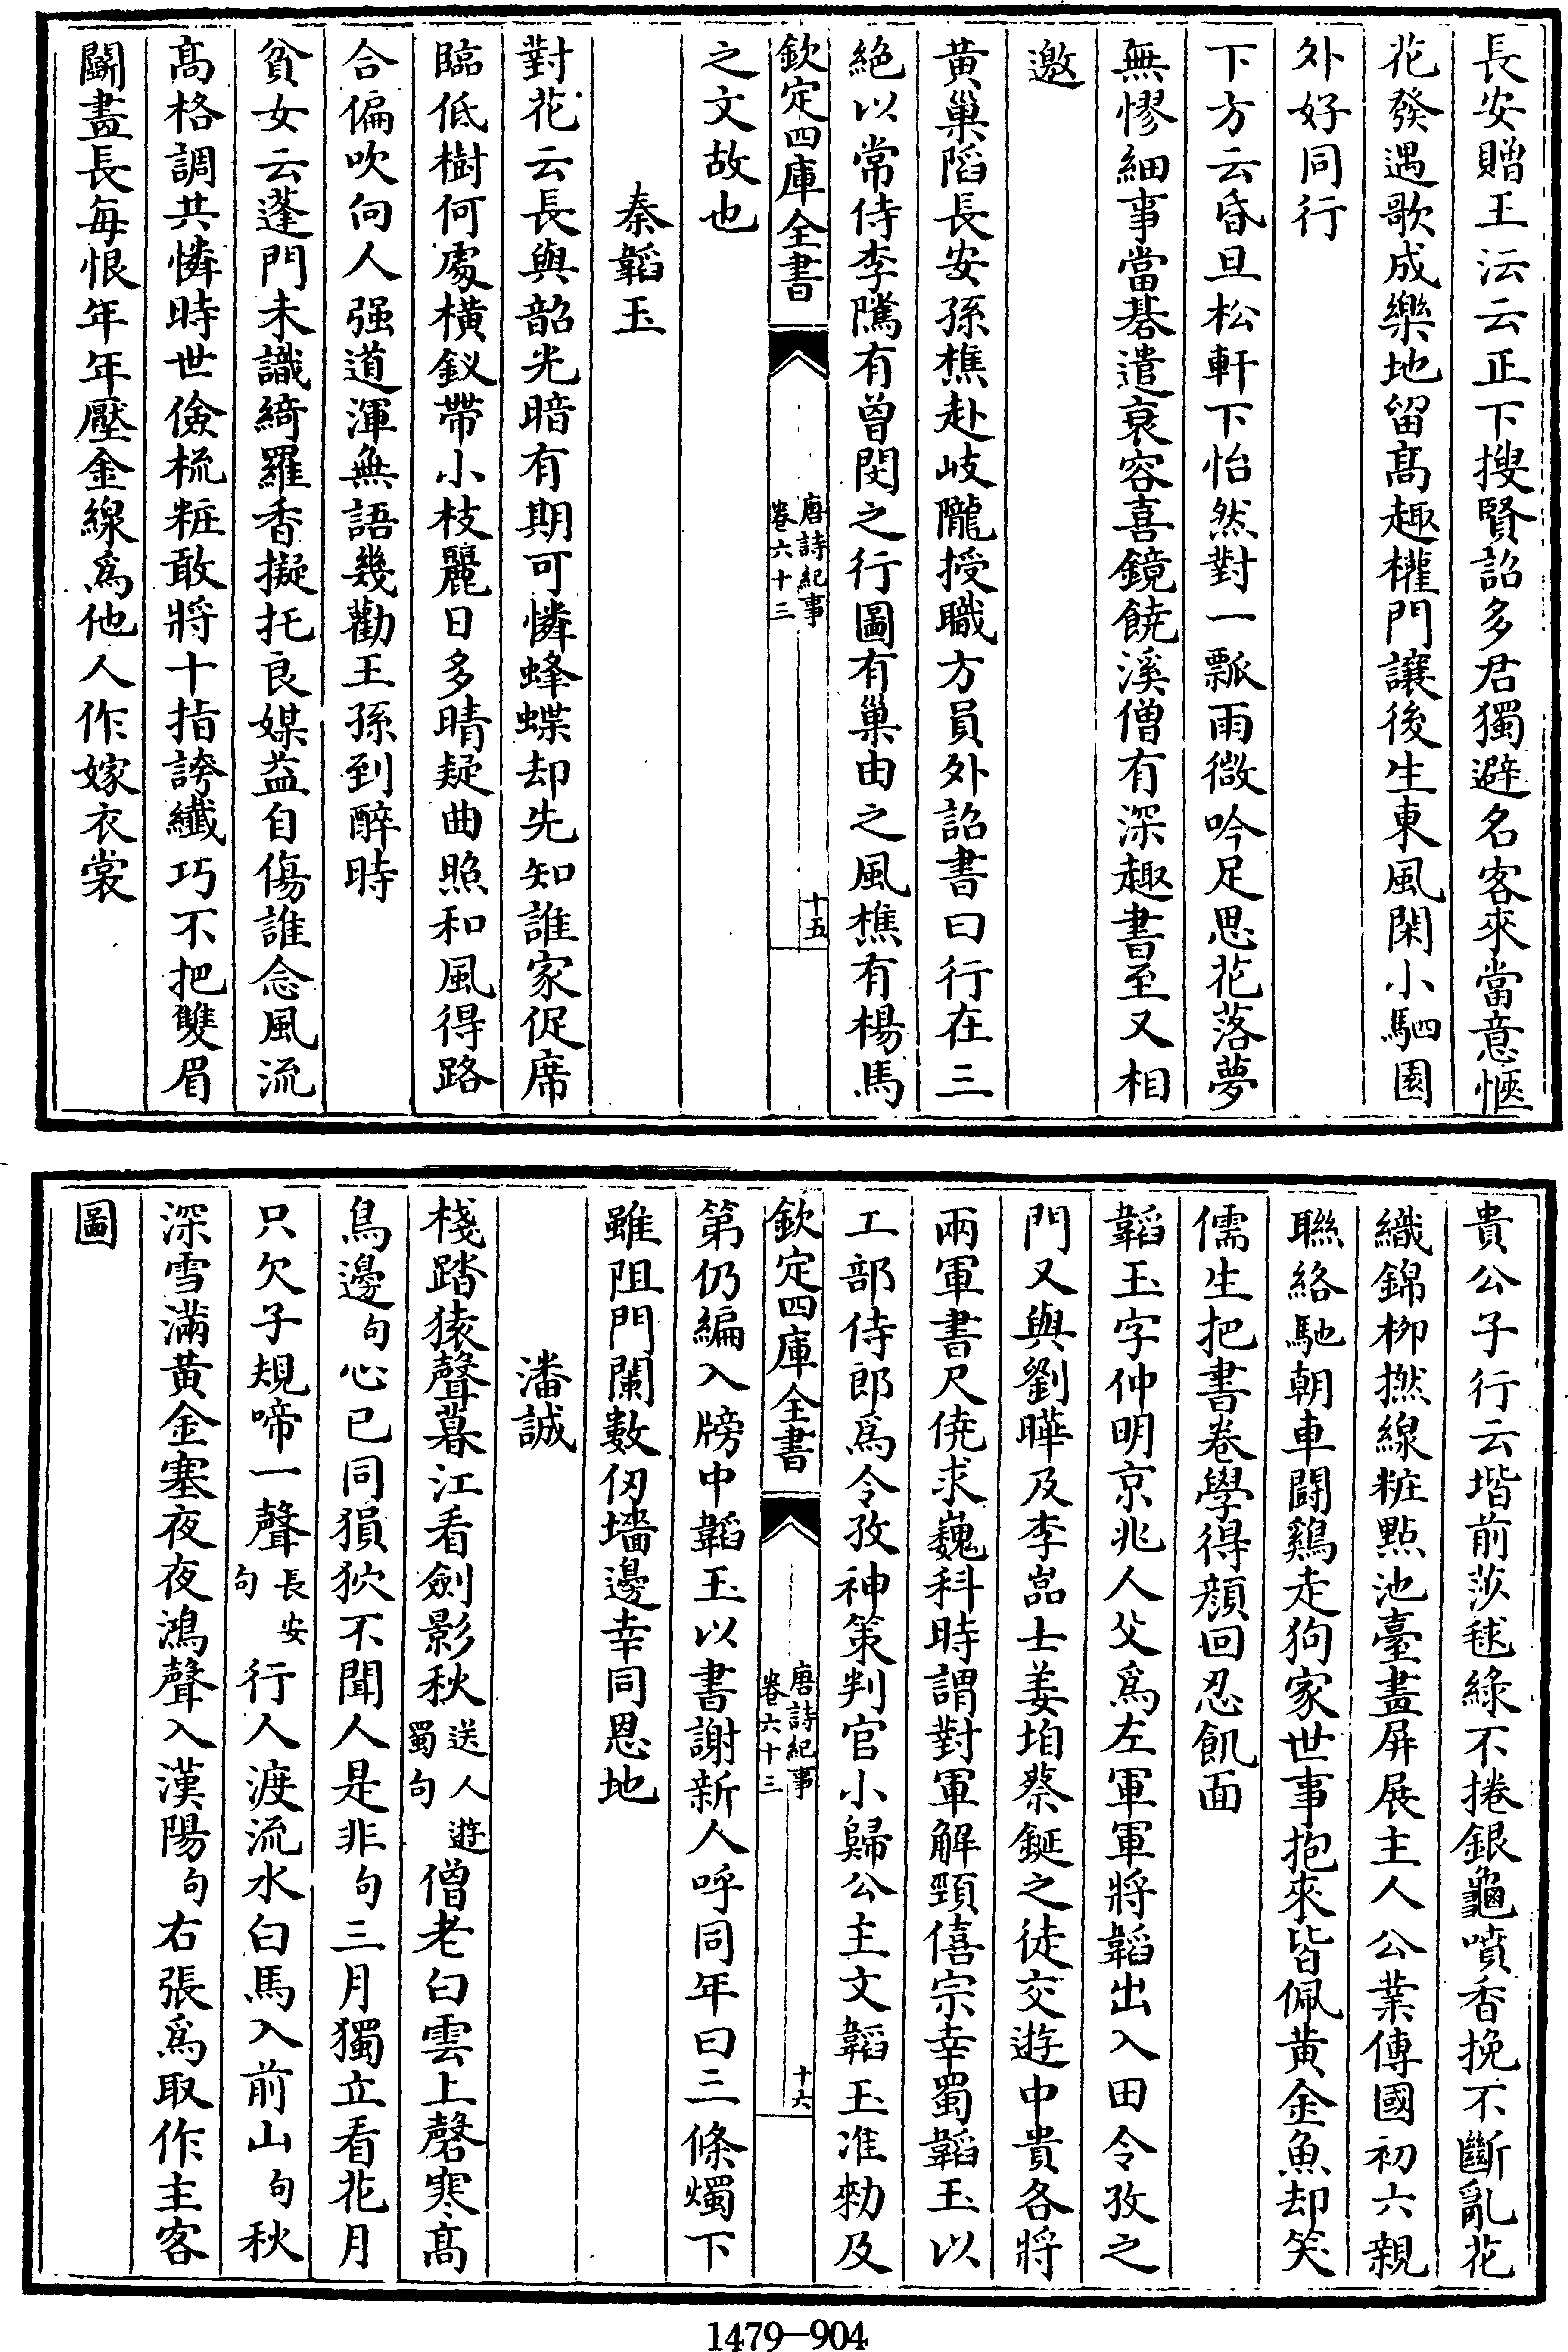 長安贈王沄云正下搜賢詔多君獨避名客來當意愜
花發遇歌成樂地留髙趣權門讓後生東風閑小駟園
外好同行
下方云昏旦松軒下怡然對一瓢雨微吟足思花落夢
無憀細事當碁遣衰容喜鏡饒溪僧有深趣書至又相
邀
黄巢䧟長安孫樵赴岐隴授職方員外詔書曰行在三
絶以常侍李隲有曾閔之行圖有巢由之風樵有楊馬
欽定四庫全書
唐詩紀事
卷六十三
十五
之文故也
秦韜玉
對花云長與韶光暗有期可憐蜂蝶却先知誰家促席
臨低樹何處横釵帶小枝麗日多晴疑曲照和風得路
合偏吹向人强道渾無語幾勸王孫到醉時
貧女云蓬門未識綺羅香擬托良媒益自傷誰念風流
髙格調共憐時世儉梳粧敢將十指誇纎巧不把雙眉
鬭畫長每恨年年壓金線爲他人作嫁衣裳
貴公子行云堦前莎毬綠不捲銀龜噴香挽不斷亂花
織錦栁撚線粧點池臺畫屏展主人公業傳國初六親
聯絡馳朝車鬭鷄走狗家世事抱來皆佩黄金魚却笑
儒生把書卷學得顔回忍飢面
韜玉字仲明京兆人父爲左軍軍將韜出入田令孜之
門又與劉曄及李喦士姜垍蔡鋋之徒交遊中貴各將
兩軍書尺僥求巍科時謂對軍解頭僖宗幸蜀韜玉以
工部侍郎爲令孜神策判官小歸公主文韜玉准勑及
欽定四庫全書
唐詩紀事
卷六十三
十六
第仍編入牓中韜玉以書謝新人呼同年曰三條燭下
雖阻門闌數仭墻邊幸同恩地
潘誠
棧踏猿聲暮江看劍影秋送人遊蜀句僧老白雲上磬寒髙
鳥邊句心已同猨狖不聞人是非句三月獨立看花月
只欠子規啼一聲長安句行人渡流水白馬入前山句秋
深雪滿黄金塞夜夜鴻聲入漢陽句右張爲取作主客
圖
1479-904